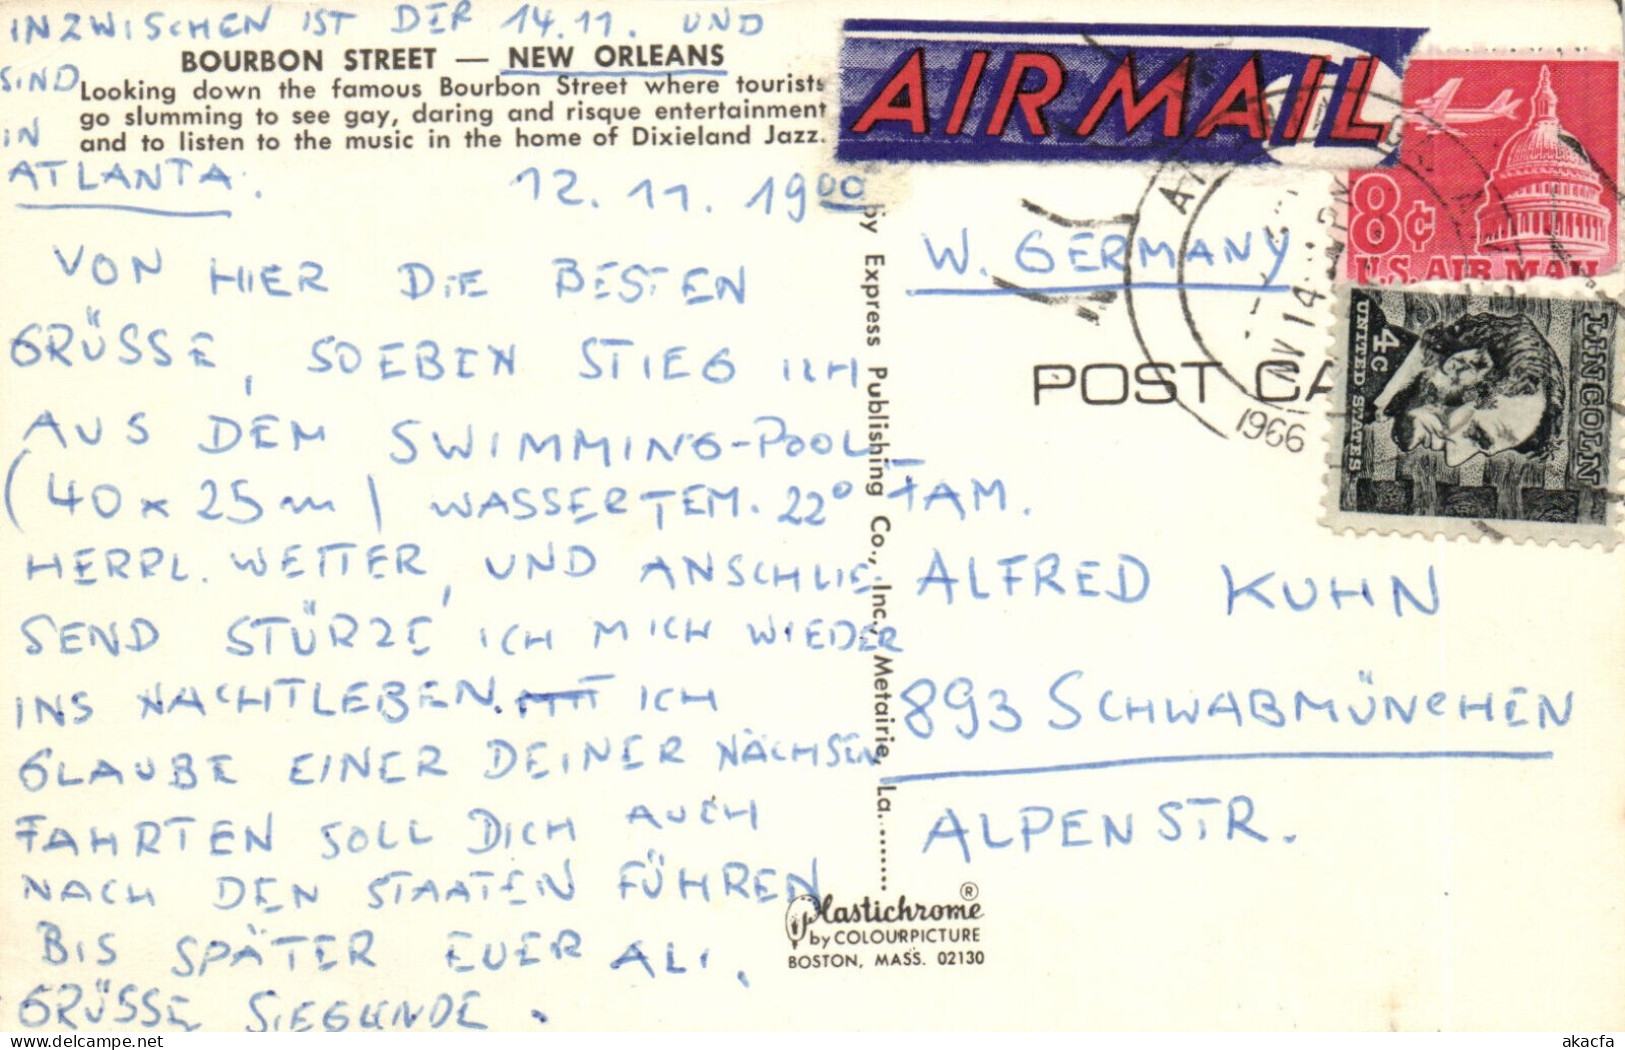 INZWISCHEN IST DER 14.11. UND
SIND
IN
ATLANTA.
BOURBON STREET — NEW ORLEANS
Looking down the famous Bourbon Street where tourists
go slumming to see gay, daring and risque entertainment
and to listen to the music in the home of Dixieland Jazz.
12.11. 1900
VON HIER DIE BESTEN
GRÜSSE, SOEBEN STIEG ICH
AUS DEM SWIMMING-POOL
(40 x 25 m) WASSERTEM. 22°
HERRL. WETTER, UND ANSCHLIE
SEND STÜRZE ICH MICH WIEDER
INS NACHTLEBEN. ICH
GLAUBE EINER DEINER NÄCHSEN
FAHRTEN SOLL DICH AUCH
NACH DEN STAATEN FÜHREN
BIS SPÄTER EUER ALI.
GRÜSSE SIEGLINDE.
by Express Publishing Co., Inc., Metairie, La.
Plastichrome ®
by COLOURPICTURE
BOSTON, MASS. 02130
AIR MAIL
8¢
U.S. AIR MAIL
LINCOLN
4¢
UNITED STATES
NV 14
1966
POST CA
W. GERMANY
FAM.
ALFRED KUHN
893 SCHWABMÜNCHEN
ALPENSTR.
akacfa